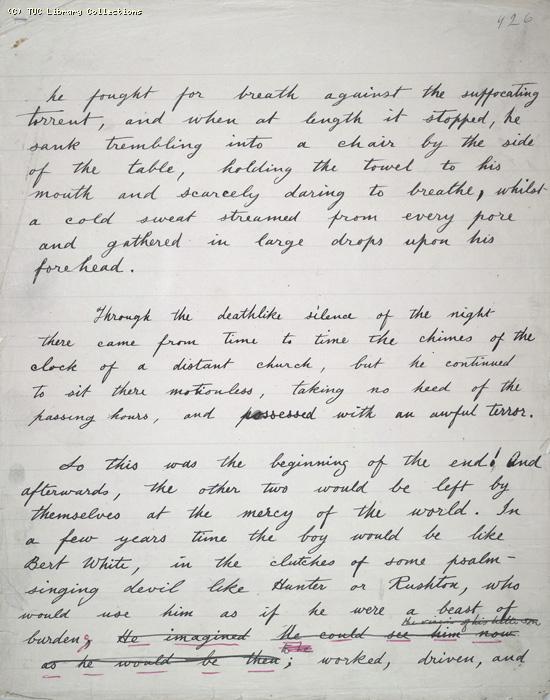 (C) TUC Library Collections
426
he fought for breath against the suffocating
torrent, and when at length it stopped, he
sank trembling into a chair by the side
of the table, holding the towel to his
mouth and scarcely daring to breathe, whilst
a cold sweat streamed from every pore
and gathered in large drops upon his
forehead.
Through the deathlike silence of the night
there came from time to time the chimes of the
clock of a distant church, but he continued
to sit there motionless, taking no heed of the
passing hours, and possessed with an awful terror.
So this was the beginning of the end! And
afterwards, the other two would be left by
themselves at the mercy of the world. In
a few years time the boy would be like
Bert White, in the clutches of some psalm-
singing devil like Hunter or Rushton, who
would use him as if he were a beast of
burden, He imagined He could see him now
as he would be then; worked, driven, and